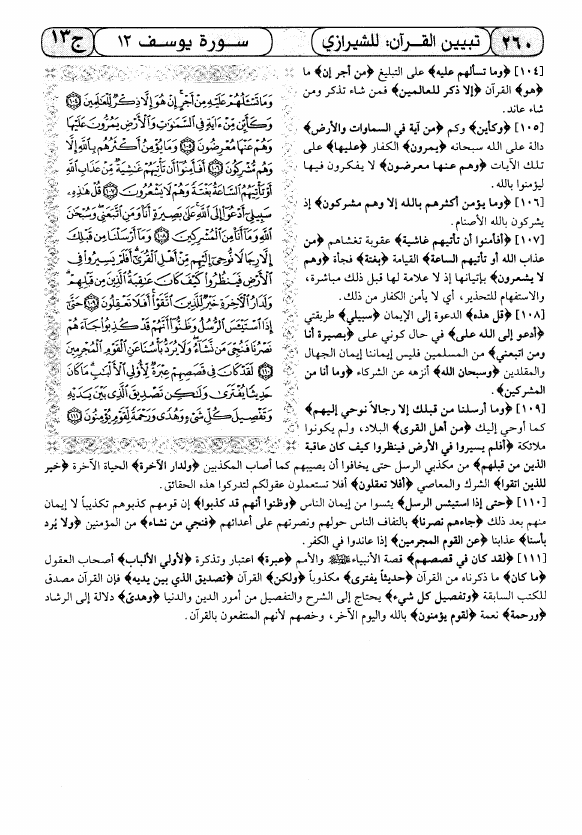 ٢٦٠
تبيين القرآن: للشيرازي
سورة يوسف ١٢
ج١٣
[١٠٤] ﴿وما تسألهم عليه﴾ على التبليغ ﴿من أجر إن﴾ ما
﴿هو﴾ القرآن ﴿إلا ذكر للعالمين﴾ فمن شاء تذكر ومن
شاء عاند.
[١٠٥] ﴿وكأين﴾ وكم ﴿من آية في السماوات والأرض﴾
دالة على الله سبحانه ﴿يمرون﴾ الكفار ﴿عليها﴾ على
تلك الآيات ﴿وهم عنها معرضون﴾ لا يفكرون فيها
ليؤمنوا بالله.
[١٠٦] ﴿وما يؤمن أكثرهم بالله إلا وهم مشركون﴾ إذ
يشركون بالله الأصنام.
[١٠٧] ﴿أفأمنوا أن تأتيهم غاشية﴾ عقوبة تغشاهم ﴿من
عذاب الله أو تأتيهم الساعة﴾ القيامة ﴿بغتة﴾ فجأة ﴿وهم
لا يشعرون﴾ بإتيانها إذ لا علامة لها قبل ذلك مباشرة،
والاستفهام للتحذير، أي لا يأمن الكفار من ذلك.
[١٠٨] ﴿قل هذه﴾ الدعوة إلى الإيمان ﴿سبيلي﴾ طريقتي
﴿أدعو إلى الله على﴾ في حال كوني على ﴿بصيرة أنا
ومن اتبعني﴾ من المسلمين فليس إيماننا إيمان الجهال
والمقلدين ﴿وسبحان الله﴾ أنزهه عن الشركاء ﴿وما أنا من
المشركين﴾.
[١٠٩] ﴿وما أرسلنا من قبلك إلا رجالاً نوحي إليهم﴾
كما أوحي إليك ﴿من أهل القرى﴾ البلاد، ولم يكونوا
ملائكة ﴿أفلم يسيروا في الأرض فينظروا كيف كان عاقبة
الذين من قبلهم﴾ من مكذبي الرسل حتى يخافوا أن يصيبهم كما أصاب المكذبين ﴿ولدار الآخرة﴾ الحياة الآخرة ﴿خير
للذين اتقوا﴾ الشرك والمعاصي ﴿أفلا تعقلون﴾ أفلا تستعملون عقولكم لتدركوا هذه الحقائق.
[١١٠] ﴿حتى إذا استيئس الرسل﴾ يئسوا من إيمان الناس ﴿وظنوا أنهم قد كذبوا﴾ إن قومهم كذبوهم تكذيباً لا إيمان
منهم بعد ذلك ﴿جاءهم نصرنا﴾ بالتفاف الناس حولهم ونصرتهم على أعدائهم ﴿فنجي من نشاء﴾ من المؤمنين ﴿ولا يُرد
بأسنا﴾ عذابنا ﴿عن القوم المجرمين﴾ إذا عاندوا في الكفر.
[١١١] ﴿لقد كان في قصصهم﴾ قصة الأنبياء والأمم ﴿عبرة﴾ اعتبار وتذكرة ﴿لأولي الألباب﴾ أصحاب العقول
﴿ما كان﴾ ما ذكرناه من القرآن ﴿حديثاً يفترى﴾ مكذوباً ﴿ولكن﴾ القرآن ﴿تصديق الذي بين يديه﴾ فإن القرآن مصدق
للكتب السابقة ﴿وتفصيل كل شيء﴾ يحتاج إلى الشرح والتفصيل من أمور الدين والدنيا ﴿وهدى﴾ دلالة إلى الرشاد
﴿ورحمة﴾ نعمة ﴿لقوم يؤمنون﴾ بالله واليوم الآخر، وخصهم لأنهم المنتفعون بالقرآن.
وَمَا تَسْـَٔلُهُمْ عَلَيْهِ مِنْ أَجْرٍ إِنْ هُوَ إِلَّا ذِكْرٌ لِّلْعَٰلَمِينَ ١٠٤
وَكَأَيِّن مِّنْ ءَايَةٍ فِى ٱلسَّمَٰوَٰتِ وَٱلْأَرْضِ يَمُرُّونَ عَلَيْهَا
وَهُمْ عَنْهَا مُعْرِضُونَ ١٠٥ وَمَا يُؤْمِنُ أَكْثَرُهُم بِٱللَّهِ إِلَّا
وَهُم مُّشْرِكُونَ ١٠٦ أَفَأَمِنُوٓا۟ أَن تَأْتِيَهُمْ غَٰشِيَةٌ مِّنْ عَذَابِ ٱللَّهِ
أَوْ تَأْتِيَهُمُ ٱلسَّاعَةُ بَغْتَةً وَهُمْ لَا يَشْعُرُونَ ١٠٧ قُلْ هَٰذِهِۦ
سَبِيلِىٓ أَدْعُوٓا۟ إِلَى ٱللَّهِ عَلَىٰ بَصِيرَةٍ أَنَا۠ وَمَنِ ٱتَّبَعَنِى وَسُبْحَٰنَ
ٱللَّهِ وَمَآ أَنَا۠ مِنَ ٱلْمُشْرِكِينَ ١٠٨ وَمَآ أَرْسَلْنَا مِن قَبْلِكَ
إِلَّا رِجَالًا نُّوحِىٓ إِلَيْهِم مِّنْ أَهْلِ ٱلْقُرَىٰٓ أَفَلَمْ يَسِيرُوا۟ فِى
ٱلْأَرْضِ فَيَنظُرُوا۟ كَيْفَ كَانَ عَٰقِبَةُ ٱلَّذِينَ مِن قَبْلِهِمْ
وَلَدَارُ ٱلْـَٔاخِرَةِ خَيْرٌ لِّلَّذِينَ ٱتَّقَوْا۟ أَفَلَا تَعْقِلُونَ ١٠٩ حَتَّىٰٓ
إِذَا ٱسْتَيْـَٔسَ ٱلرُّسُلُ وَظَنُّوٓا۟ أَنَّهُمْ قَدْ كُذِبُوا۟ جَآءَهُمْ
نَصْرُنَا فَنُجِّىَ مَن نَّشَآءُ وَلَا يُرَدُّ بَأْسُنَا عَنِ ٱلْقَوْمِ ٱلْمُجْرِمِينَ
١١٠ لَقَدْ كَانَ فِى قَصَصِهِمْ عِبْرَةٌ لِّأُو۟لِى ٱلْأَلْبَٰبِ مَا كَانَ
حَدِيثًا يُفْتَرَىٰ وَلَٰكِن تَصْدِيقَ ٱلَّذِى بَيْنَ يَدَيْهِ
وَتَفْصِيلَ كُلِّ شَىْءٍ وَهُدًى وَرَحْمَةً لِّقَوْمٍ يُؤْمِنُونَ ١١١